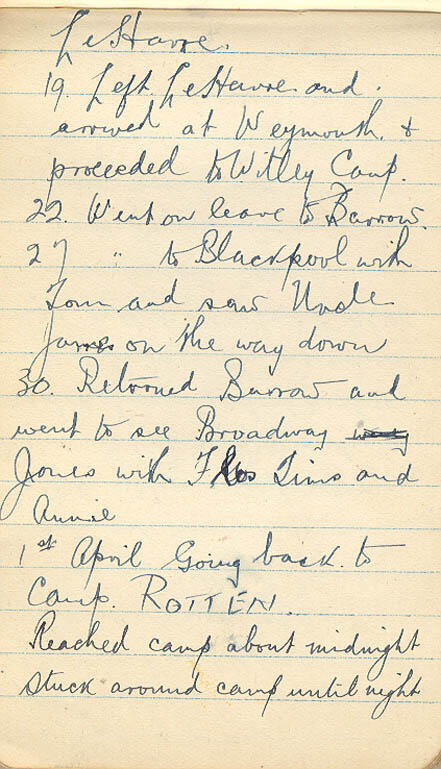 LeHavre.
19. Left LeHavre and.
arrived at Weymouth. &
proceeded to Witley Camp.
22. Went on leave to Barrow.
27 " to Blackpool with
Tom and saw Uncle
James on the way down
30. Returned Barrow and
went to see Broadway
Jones with Flos Tims and
Annie
1st April Going back to
Camp. ROTTEN.
Reached camp about midnight
stuck around camp until night